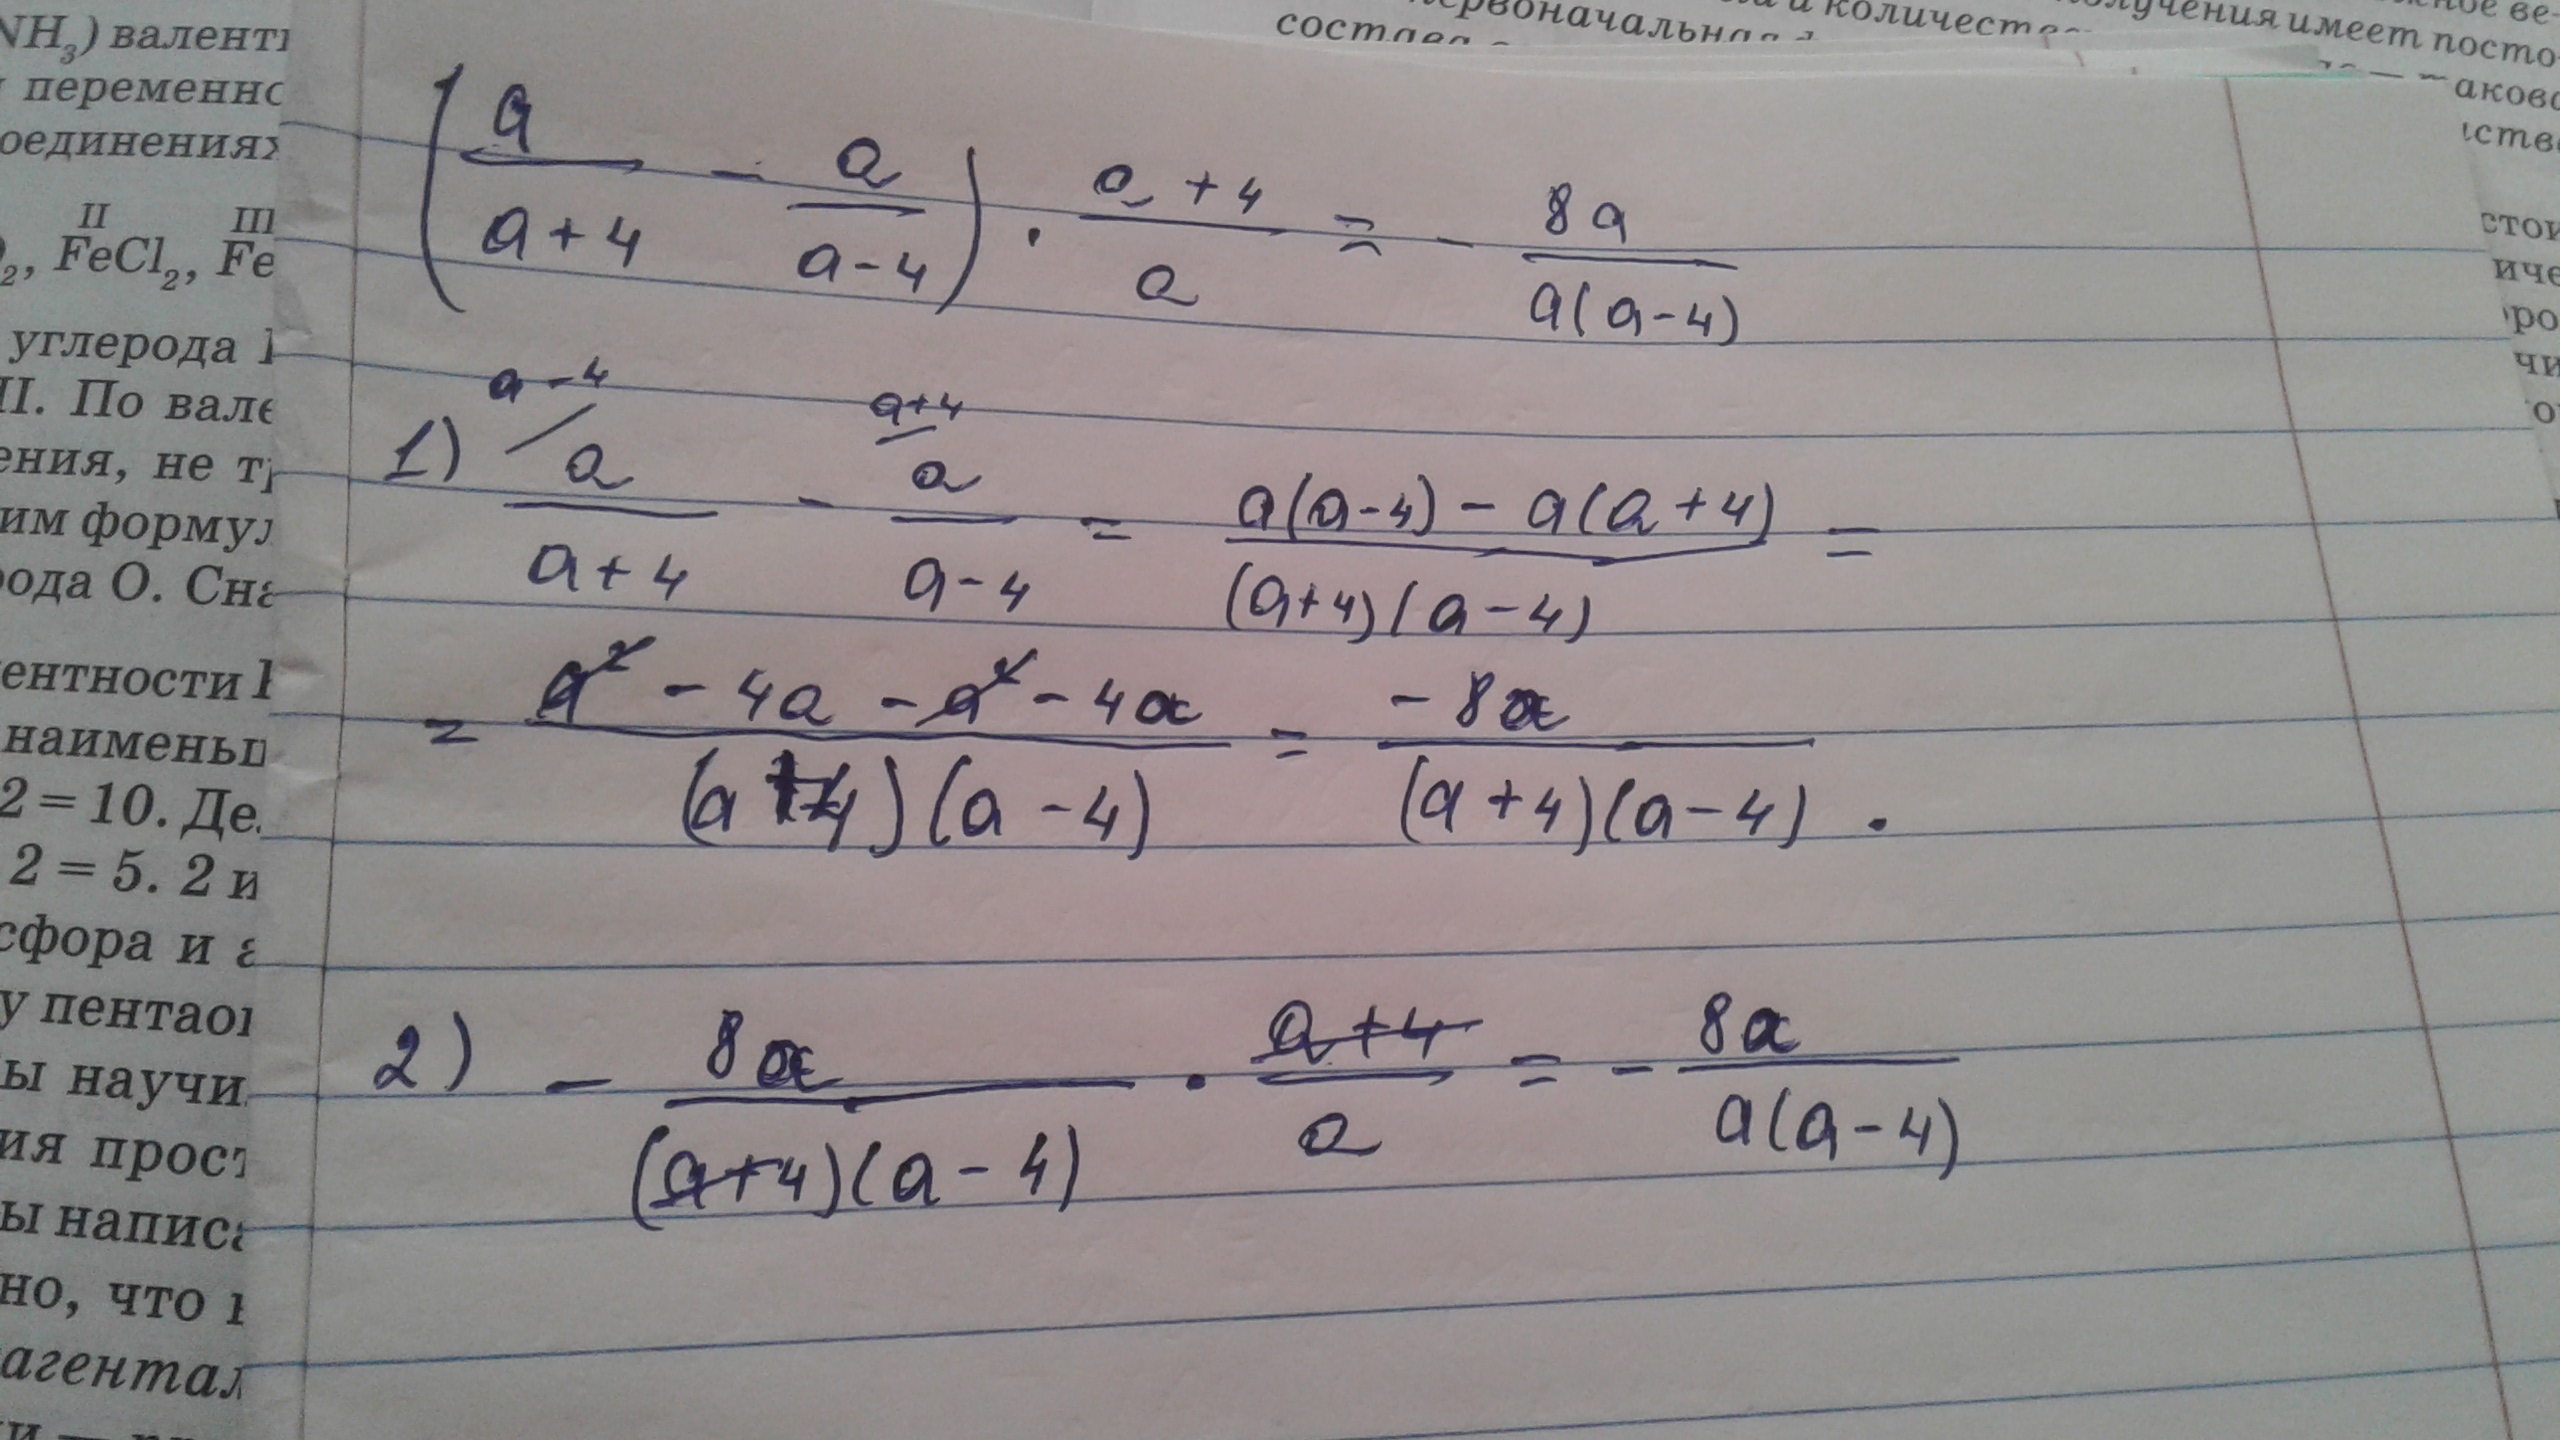 NH₃) валент
переменно
оединениях
II III
₂, FeCl₂, Fe
углерода
II. По вале
ения, не т
им формул
рода О. Сна
ентности
наимень
2 = 10. Де
2 = 5. 2 и
сфора и
у пентаок
ы научи
ия прост
ы напис
но, что
агентал
и количеств
олучения имеет посто
первоначальная
состава
аково
ств
стои
иче
ро
чи
(a/(a+4) - a/(a-4)) · (a+4)/a = - 8a/(a(a-4))
1) a-4/ a/(a+4) - a+4/ a/(a-4) = (a(a-4) - a(a+4))/((a+4)(a-4)) =
= (a² - 4a - a² - 4a)/((a+4)(a-4)) = -8a/((a+4)(a-4)) .
2) - 8a/((a+4)(a-4)) · (a+4)/a = - 8a/(a(a-4))